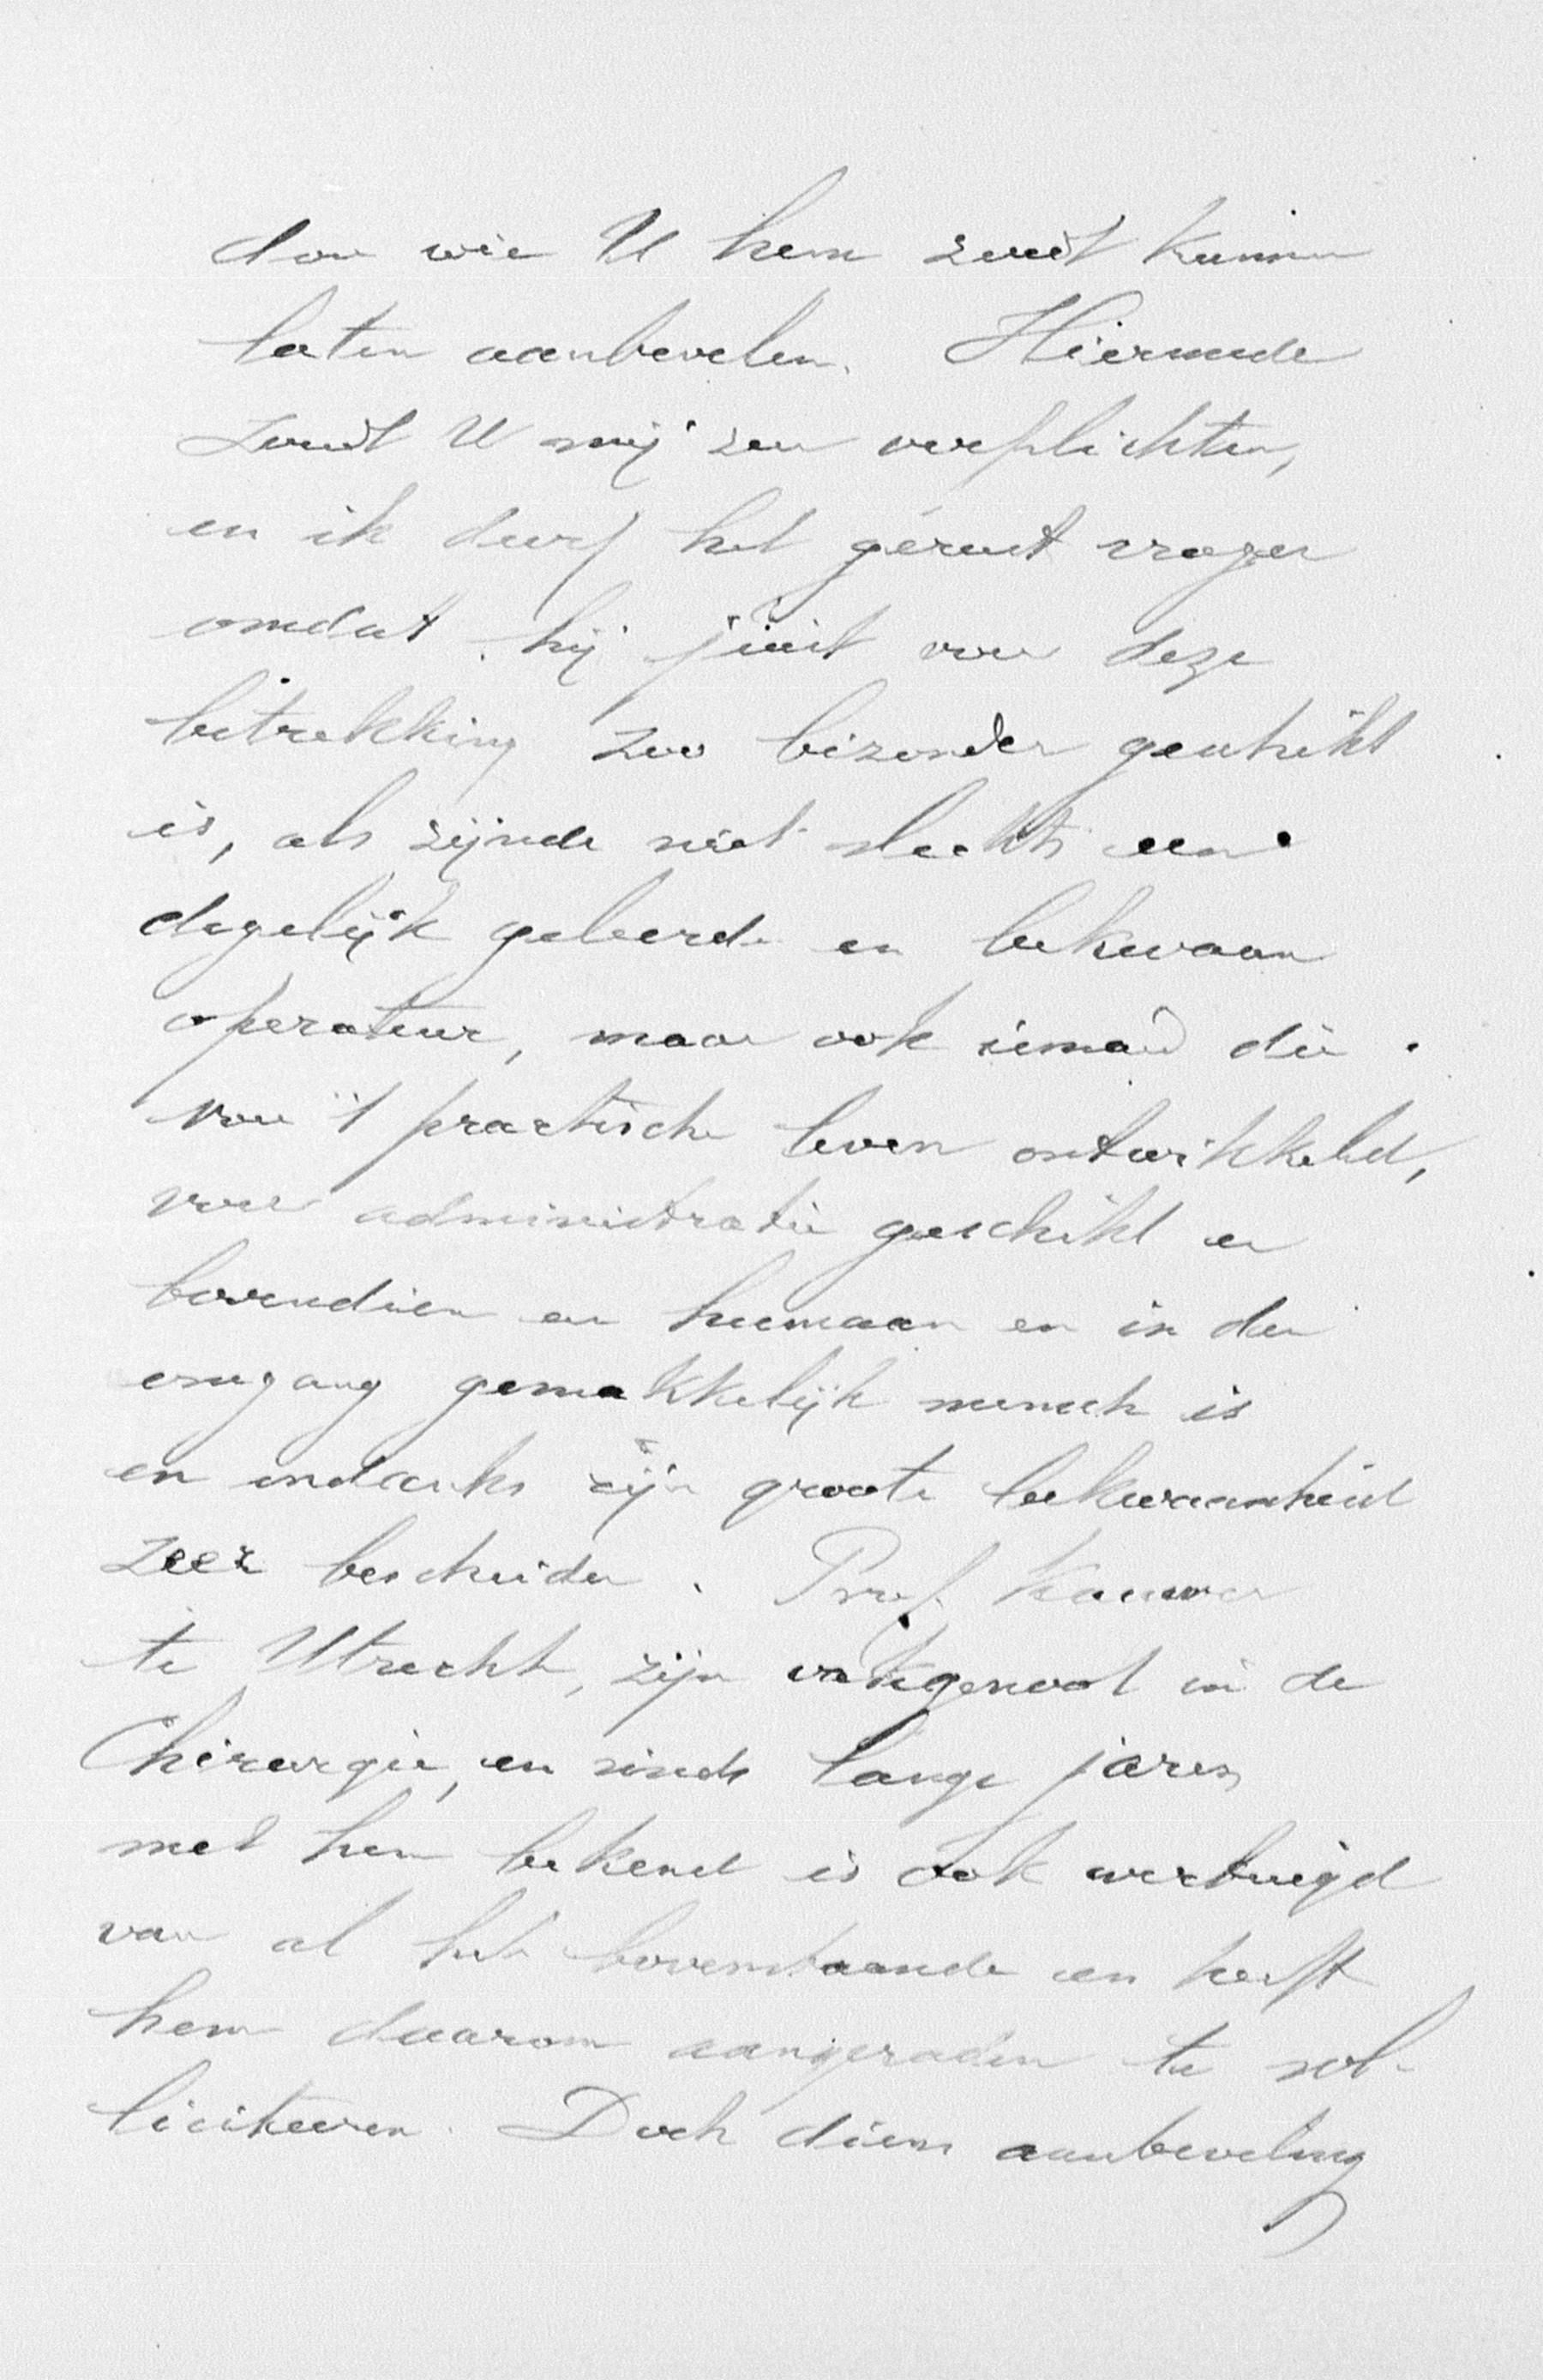 door wie U hem zoudt kunnen
laten aanbevelen. Hiermede
zoudt U mij zeer verplichten,
en ik durf het gerust vragen
omdat hij juist voor deze
betrekking zoo bizonder geschikt
is, als zijnde niet slechts een
degelijk geleerde en bekwaam
operateur, maar ook iemand die
voor 't practische leven ontwikkeld,
voor administratie geschikt en
bovendien een humaan en in den
omgang gemakkelijk mensch is
en ondanks zijn groote bekwaamheid
zeer bescheiden. Prof.
te Utrecht, zijn vakgenoot in de
Chirurgie, en sinds lange jaren
met hem bekend is ook overtuigd
van al het bovenstaande en heeft
hem daarom aangeraden te sol-
liciteeren. Doch diens aanbeveling